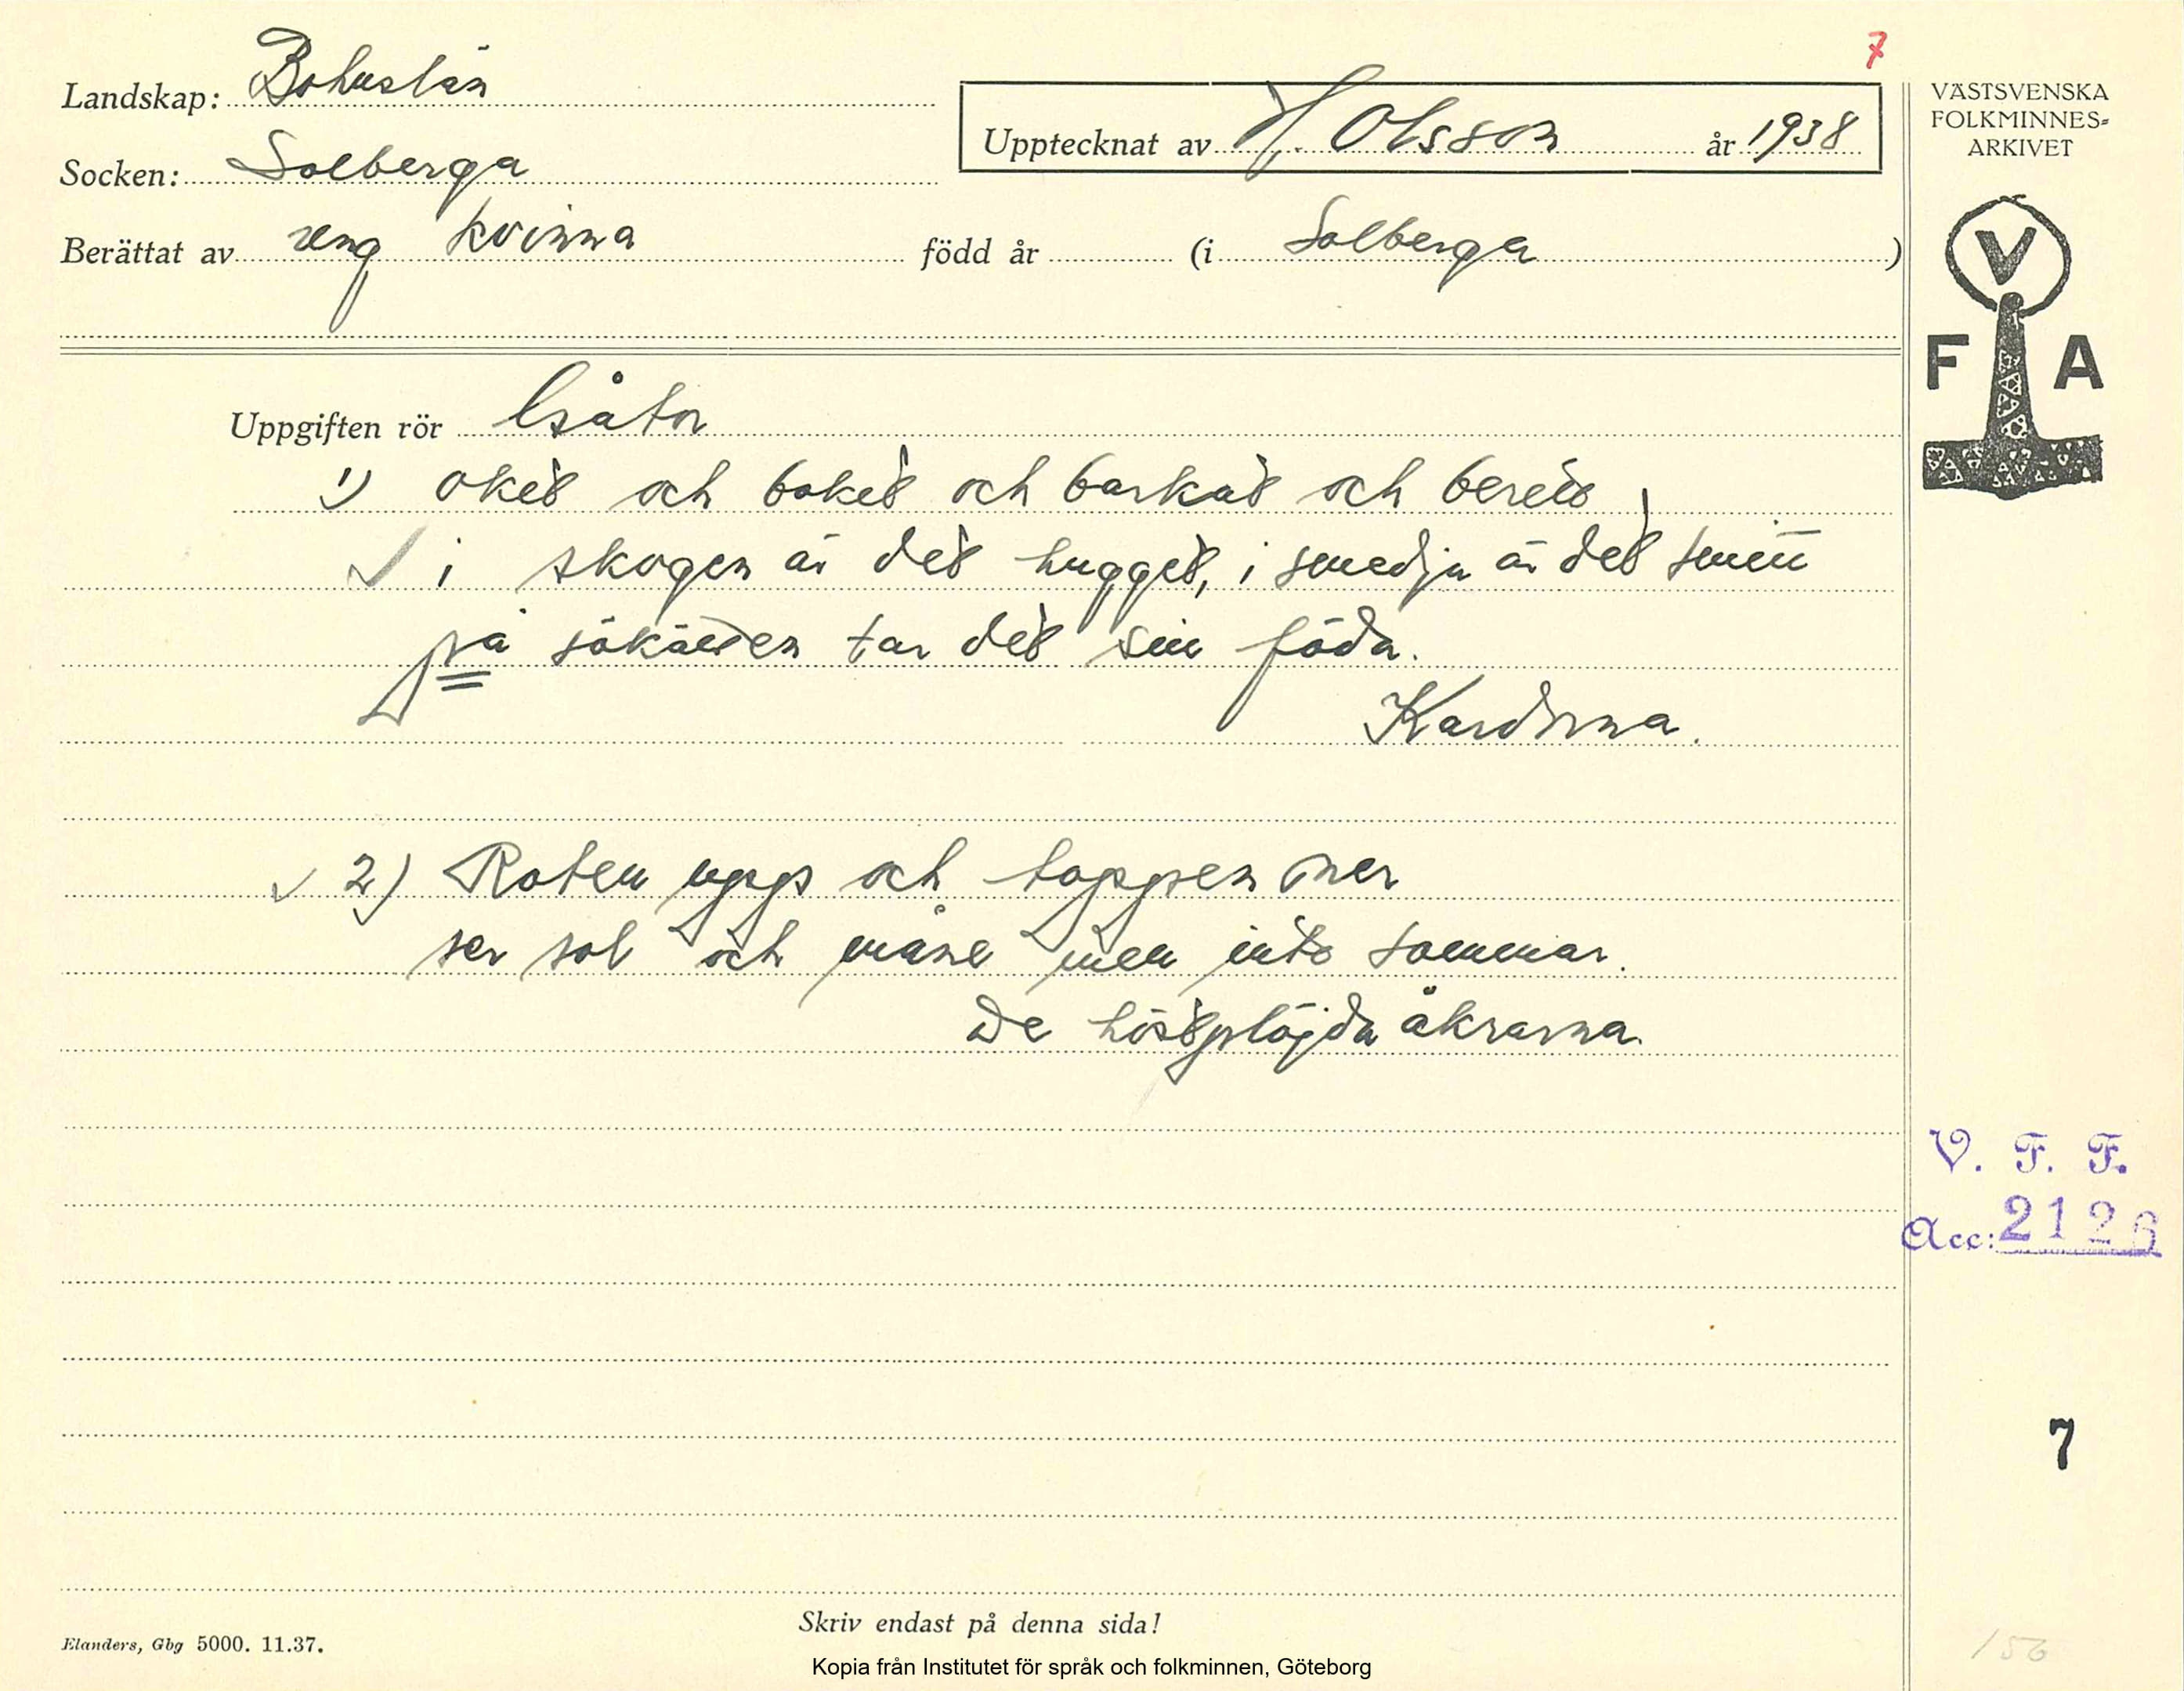 7
Landskap: Bohuslän
Socken: Solberga
Upptecknat av H. Olsson år 1938
Berättat av ung kvinna född år (i Solberga )
VÄSTSVENSKA
FOLKMINNES-
ARKIVET
V
F A
Uppgiften rör Gåtor
1) oket och boket och barkat och berett
i skogen är det hugget, i smedja är det smitt
på tar det sin föda.
Kardorna.
2) Roten upp och toppen ner
ser sol och måne men inte sommar.
De höstplöjda åkrarna.
V. F. F.
Acc: 2126
7
Skriv endast på denna sida!
Elanders, Gbg 5000. 11.37.
Kopia från Institutet för språk och folkminnen, Göteborg
156